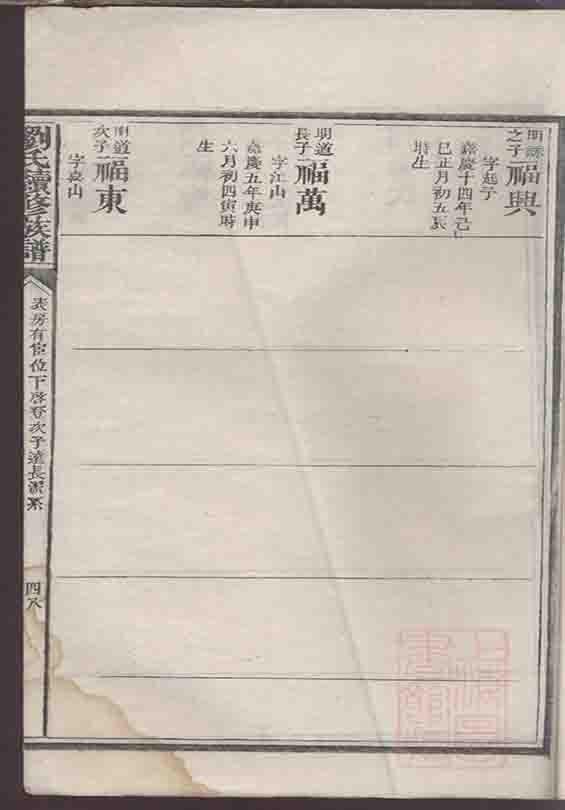 之子福興
字起于
嘉慶十四年己
巳正月初五辰
時生
明道
長子福萬
字江山
嘉慶五年庚申
六月初四寅時
生
明道
次子福東
山
劉氏續修族譜
房有宦位下啓登次子達長潔系
四八